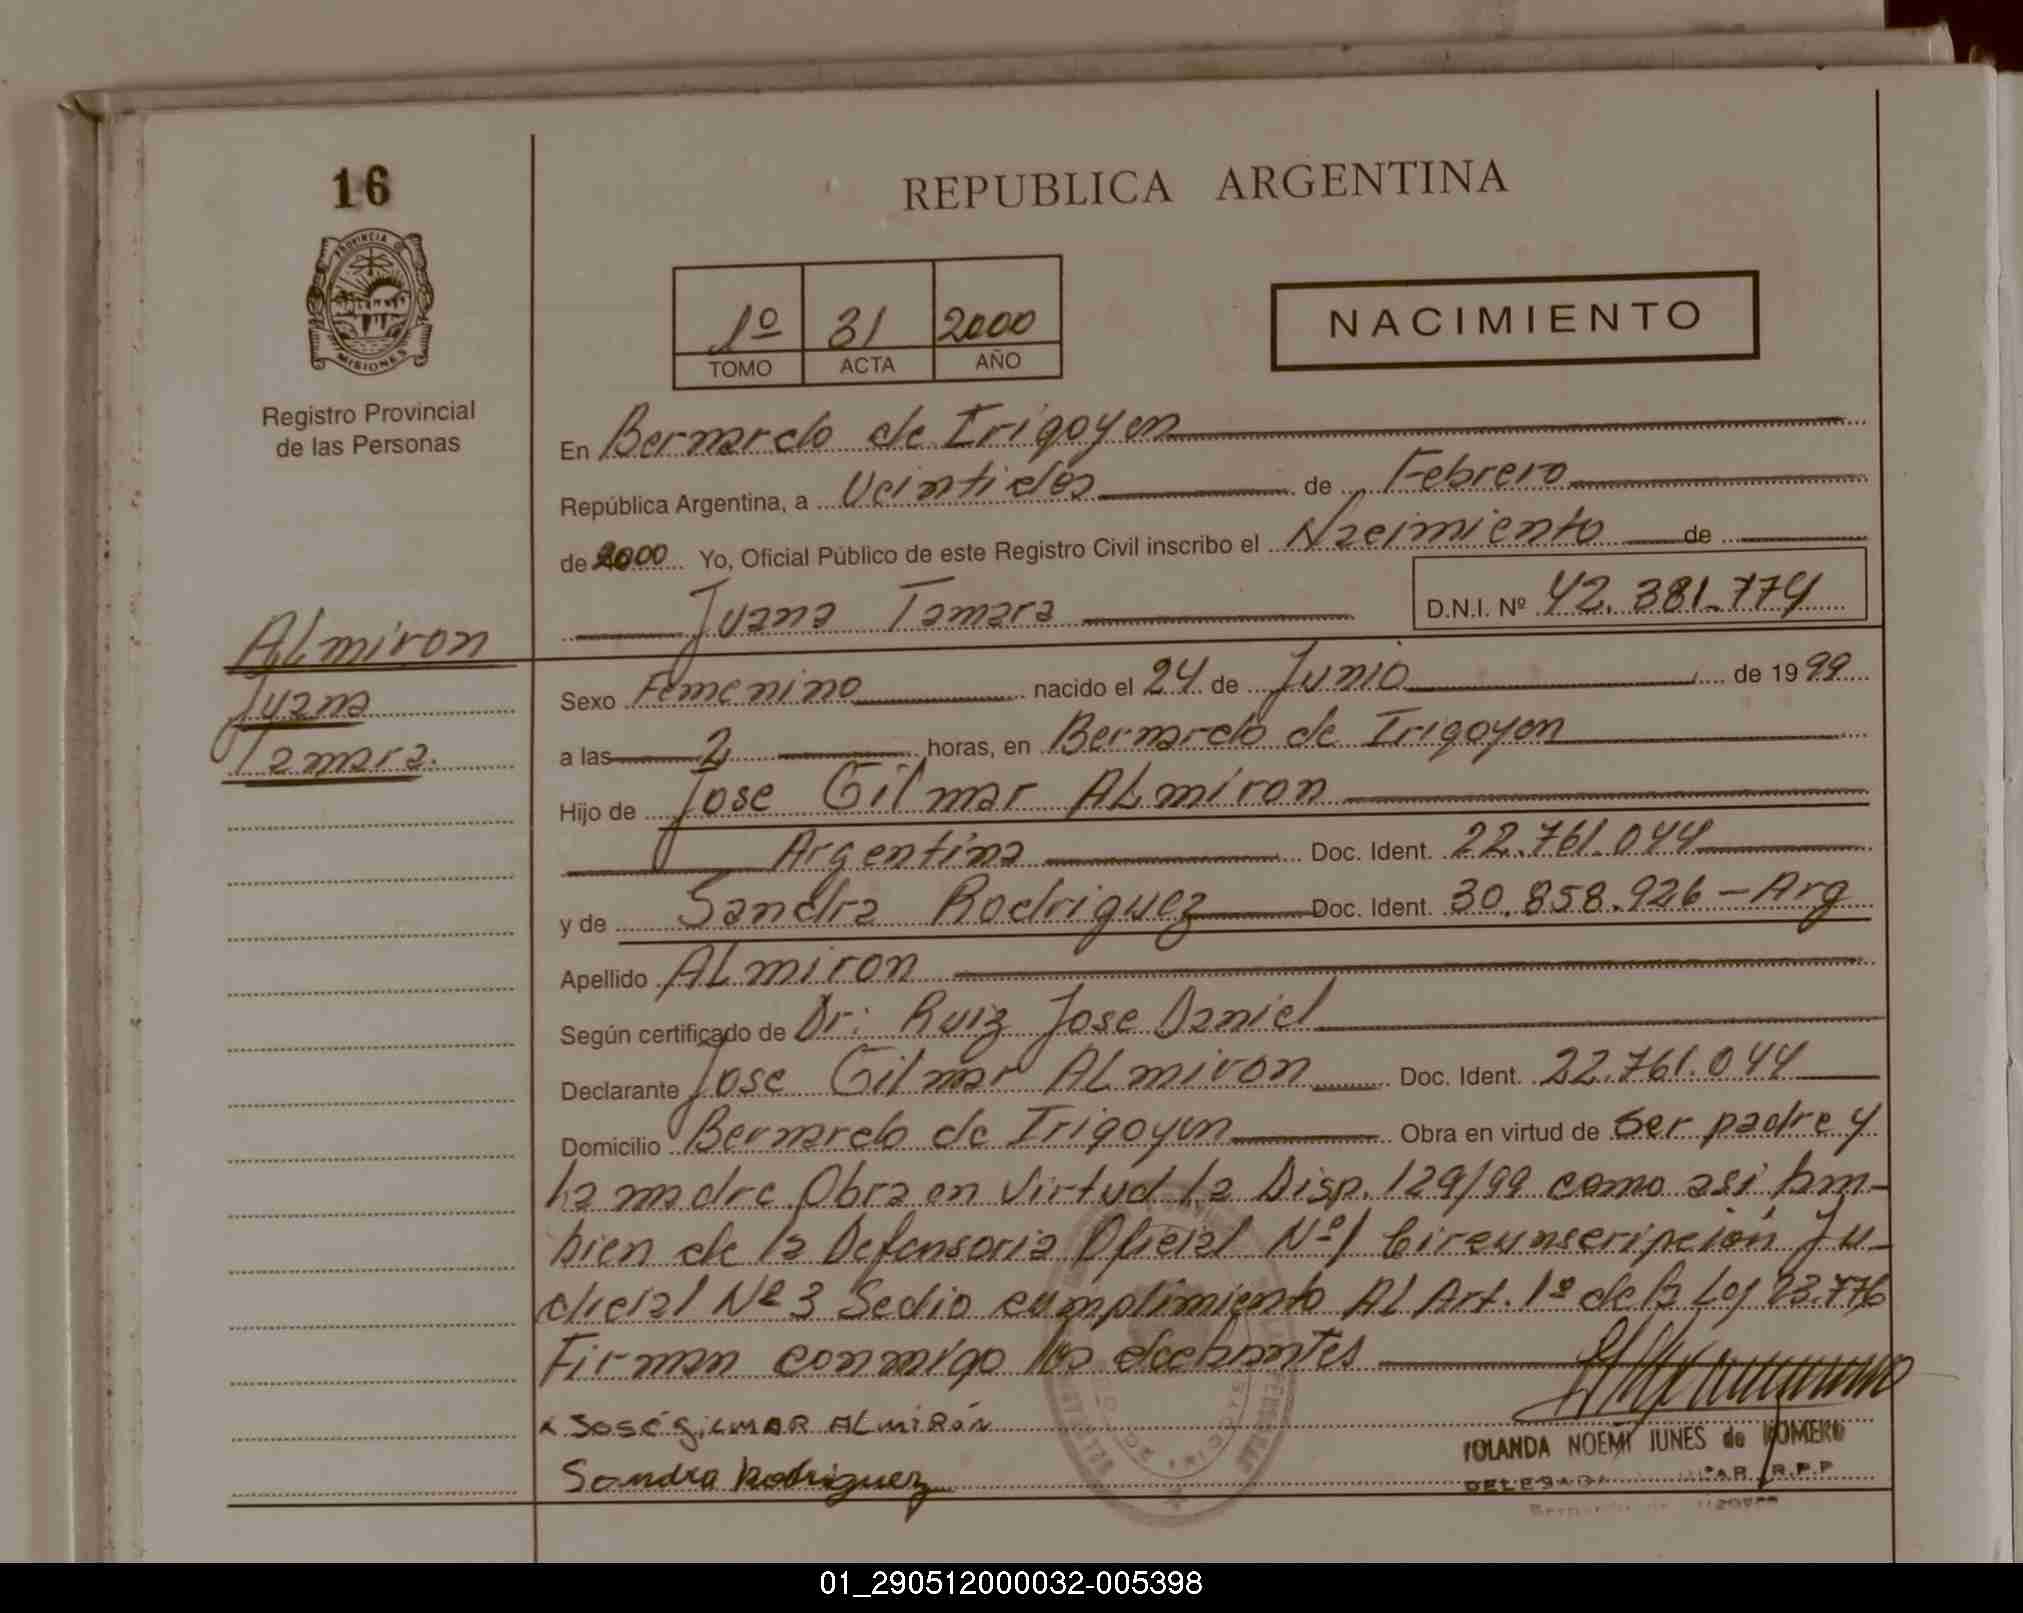 16
PROVINCIA DE
MISIONES
Registro Provincial
de las Personas
REPUBLICA ARGENTINA
1º 31 2000
TOMO ACTA AÑO
NACIMIENTO
En Bernardo de Irigoyen
República Argentina, a Veintidós de Febrero
de 2000 Yo, Oficial Público de este Registro Civil inscribo el Nacimiento de
Juana Tamara D.N.I. Nº 42.381.774
Almiron
Juana
Tamara.
Sexo Femenino nacido el 24 de Junio de 1999
a las 2 horas, en Bernardo de Irigoyen
Hijo de Jose Gilmar Almiron
Argentina Doc. Ident. 22.761.044
y de Sandra Rodriguez Doc. Ident. 30.858.926 - Arg
Apellido Almiron
Según certificado de Dr: Ruiz Jose Daniel
Declarante Jose Gilmar Almiron Doc. Ident. 22.761.044
Domicilio Bernardo de Irigoyen Obra en virtud de Ser padre y
la madre Obra en Virtud la Disp. 129/99 como asi tam-
bien de la Defensoria Oficial Nº 1 Circunscripción Ju-
dicial Nº 3 Se dio cumplimiento Al Art. 1º de la Ley 23.776
Firman conmigo los
x José Gilmar Almirón
Sandra Rodriguez
YOLANDA NOEMI JUNES de ROMERO
DELEGADA R.P.P
01_290512000032-005398